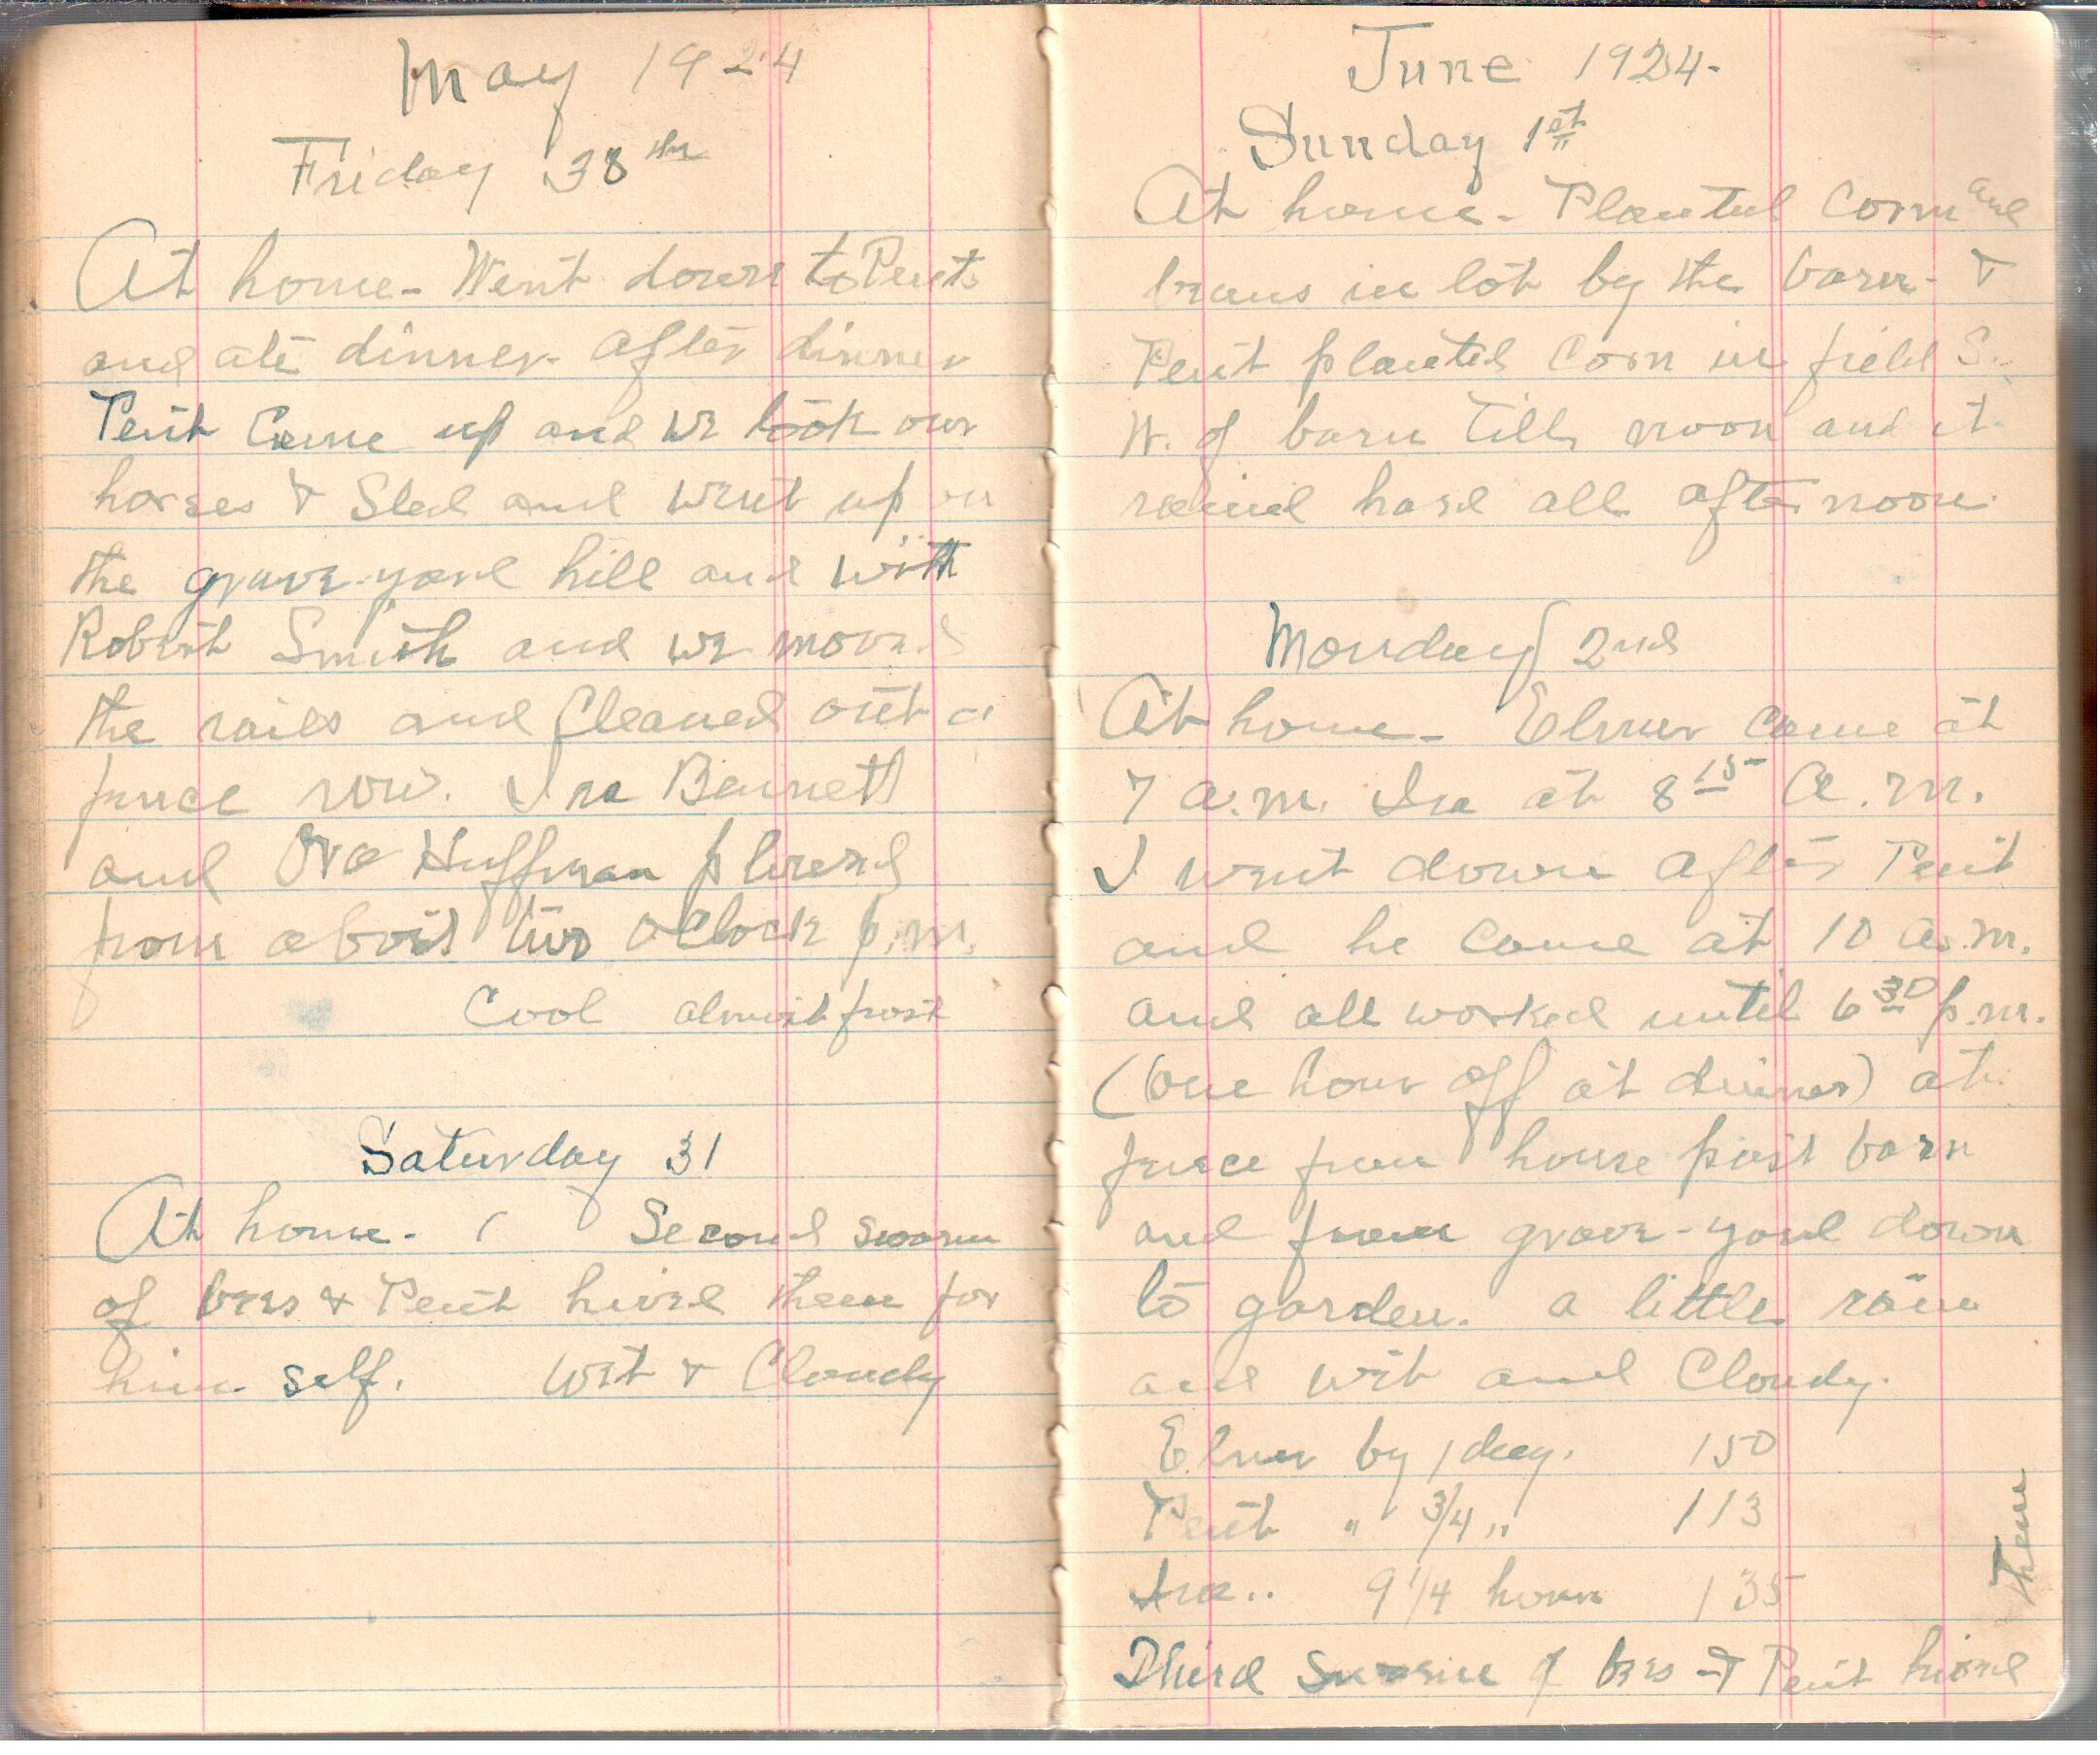 May 1924
Friday 30th
At home - Went down to Pents
and ate dinner. After dinner
Pent Came up and we took our
horses & Sled and went up on
the grave-yard hill and with
Robert Smith and we moved
the rails and Cleaned out a
fence row. Ira Bennett
and Ora Huffman plowed
from about two O Clock p.m.
Cool almost frost
Saturday 31
At home. ( Second swarm
of bees & Pent hived them for
him self. Wet & Cloudy
June 1924-
Sunday 1st
At home - Planted Corn and
beans in lot by the barn - &
Pent planted Corn in field S.
W. of barn till noon and it
rained hard all afternoon
Monday 2nd
At home - Elmer came at
7 a.m. Ira at 8 15 a.m.
I went down after Pent
and he came at 10 a.m.
and all worked until 6 30 p.m.
(one hour off at dinner) at
fence from house past barn
and from grave-yard down
to garden. a little rain
and wet and Cloudy.
Elmer by 1 day. 150
Pent " 3/4 " 113
Ira .. 9 1/4 hours 135
Third Swarm of bees & Pent hived
them